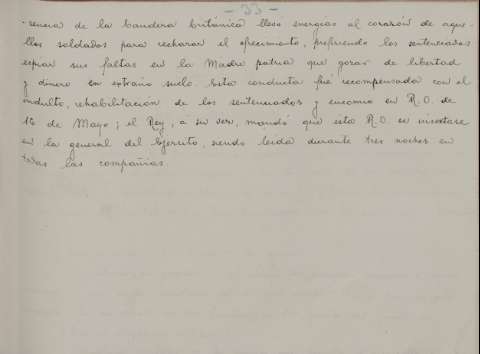 - 33 -
-sencia de la bandera británica llevó energías al corazón de aque-
llos soldados para rechazar el ofrecimiento, prefiriendo los sentenciados
expiar sus faltas en la Madre patria que gozar de libertad
y dinero en extraño suelo. Esta conducta fué recompensada con el
indulto, rehabilitación de los sentenciados y encomio en R.O. de
16 de Mayo; el Rey, á su vez, mandó que esta R.O. se insertase
en la general del Ejército, siendo leida durante tres noches en
todas las compañias